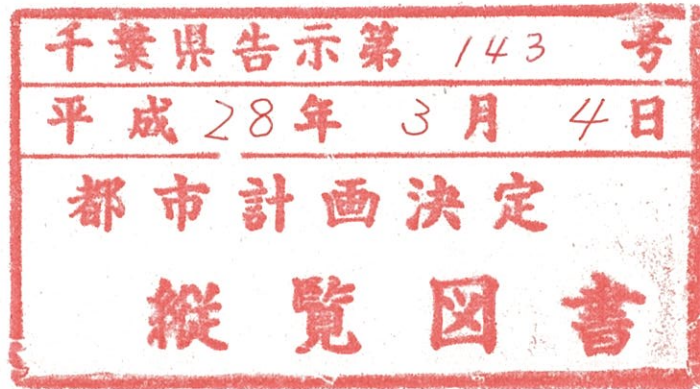 千葉県告示第 143 号
平成 28年 3月 4日
都市計画決定
縦覧図書